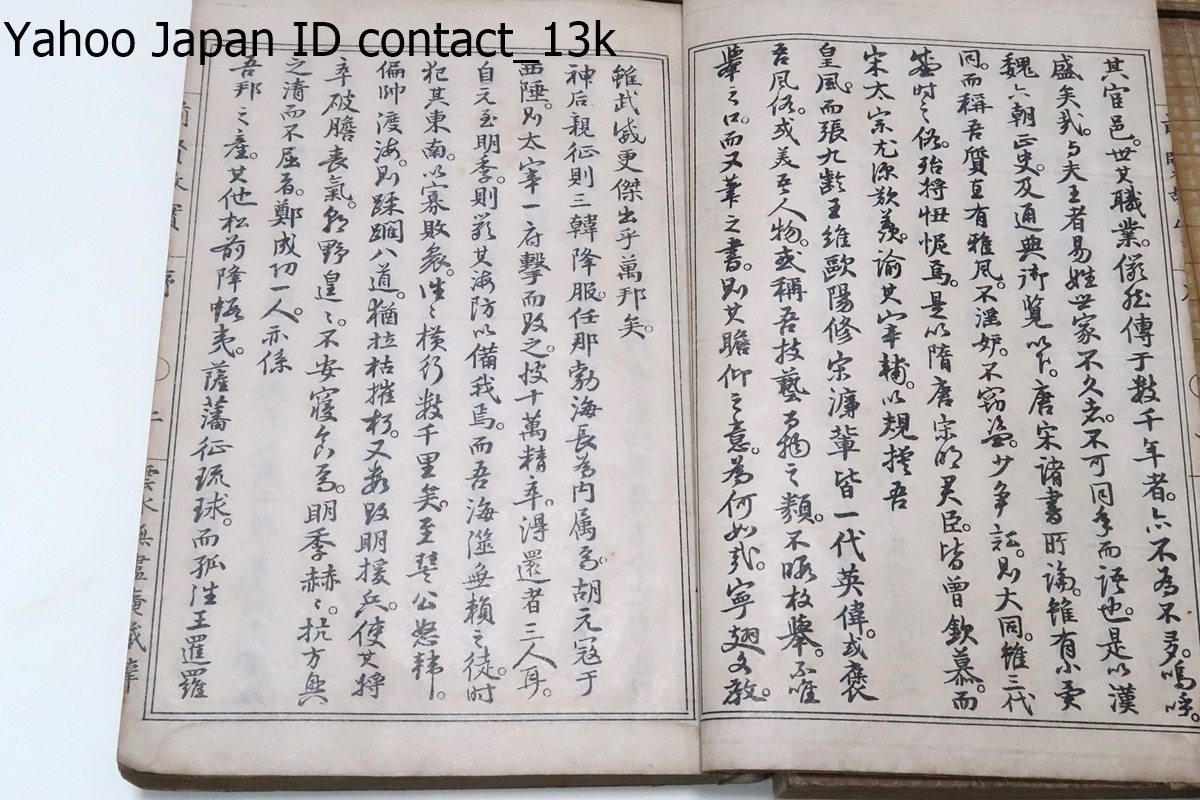 Yahoo Japan ID contact_13k
其官邑。世其職業。儼然傳于數千年者。亦不為不多。嗚呼。
盛矣哉。與夫王者易姓世家不久者。不可同年而語也。是以漢
魏六朝正史。及通典御覽以下。唐宋諸書所論。雖有小異
同。而稱吾質直有雅風。不淫妒。不窃盜。少爭訟。則大同。雖三代
盛時之俗。殆將忸怩焉。是以隋唐宋明君臣。皆曾欽慕。而
宋太宗尤深歎羨。諭其宰輔。以規摸吾
皇風。而張九齡王維歐陽修宋濂輩皆一代英偉。或褒
吾風俗。或美吾人物。或稱吾技藝名物之類。不暇枚舉。不唯
舉之口。而又筆之書。則其瞻仰之意。為何如哉。寧翅文教。
雖武威更傑出乎萬邦矣。
神后親征則三韓降服。任那勃海長為内属焉。胡元寇于
西陲。則太宰一府擊而敗之。披十萬精卒。得還者三人耳。
自元至明季。則嚴其海防以備我焉。而吾海澨無賴之徒。時
犯其東南。以寡敗衆。往々橫行數千里矣。至豐公怒韓。
偏帥渡海。則蹂躙八道。猶拉枯摧朽。又每敗明援兵。使其將
卒破膽喪氣。朝野皇々。不安寢食焉。明季赫々。抗方興
之清而不屈者。鄭成功一人。亦係
吾邦之產。其他松前降蝦夷。薩藩征琉球。而孤往王暹羅
前賢故實
序
〇
二
雲水無盡庵藏